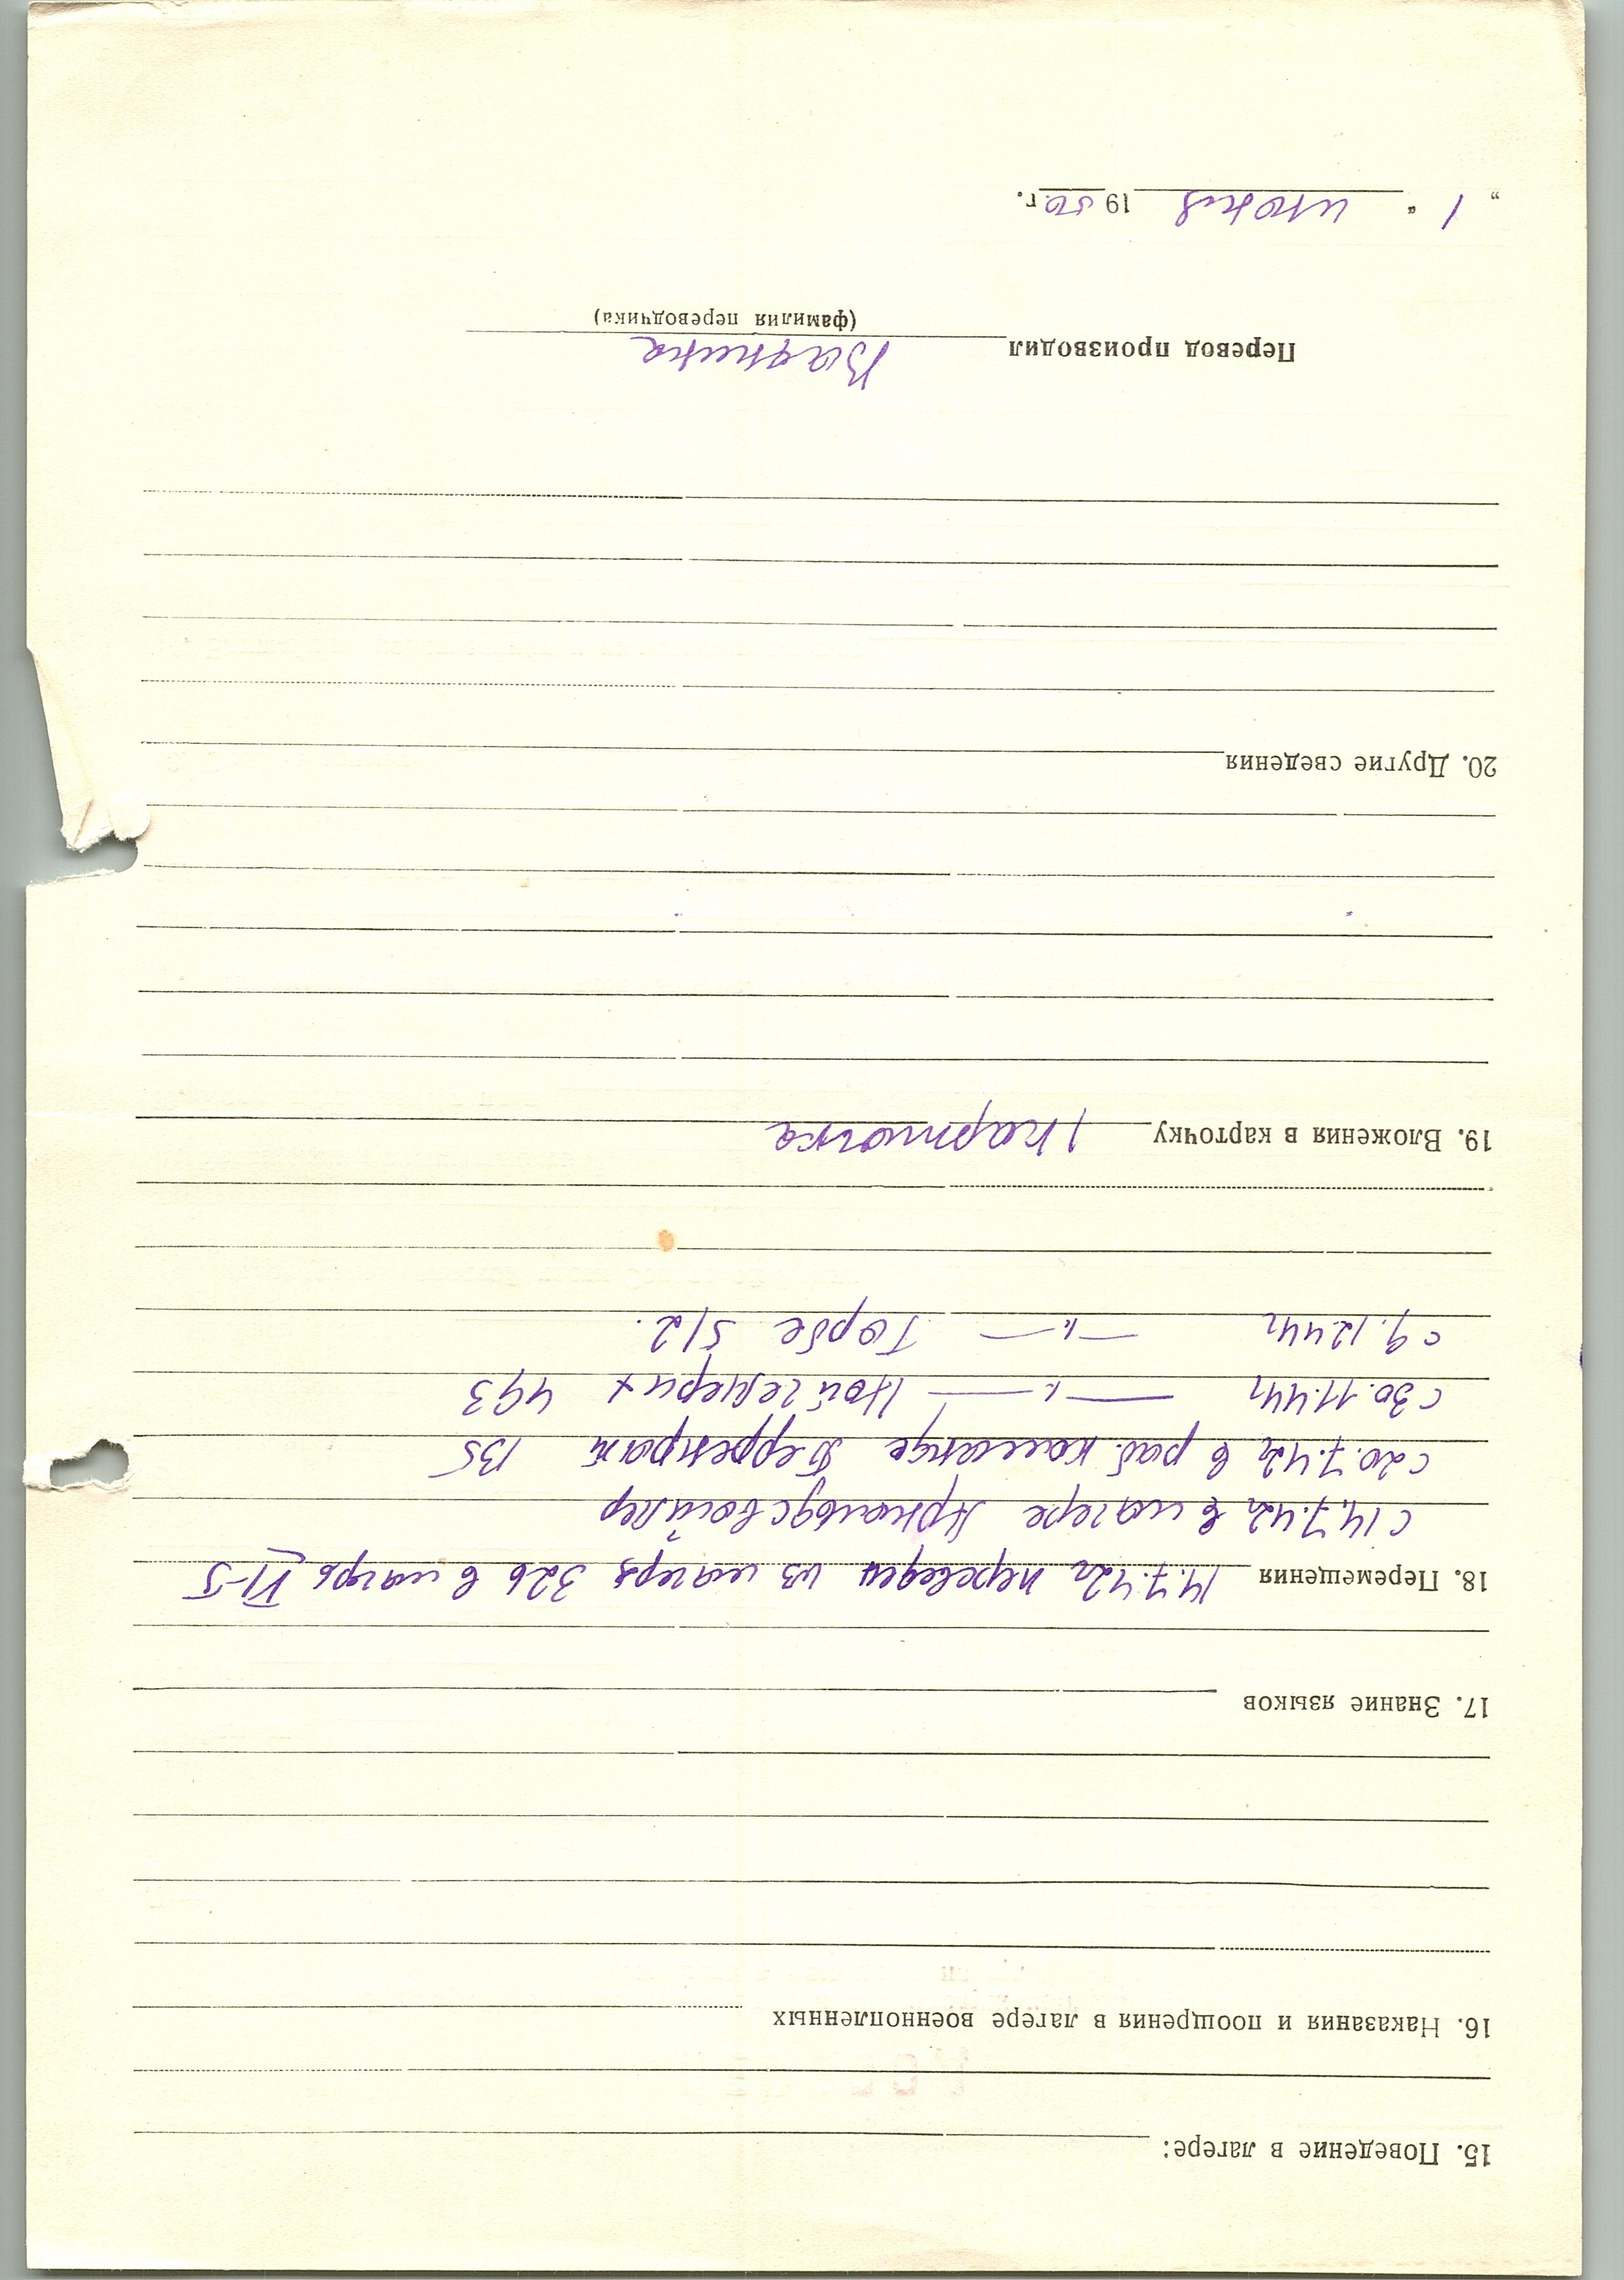 15. Поведение в лагере:
16. Наказания и поощрения в лагере военнопленных
17. Знание языков
18. Перемещения 14.7.42г переведен из лагеря 326 в лагерь VI-Б
с 14.7.42г в лагере Арнольдсвайлер
с 20.7.42г в раб. команде 135
с 30.11.44г —"— 493
с 9.12.44г —"— Горбе 512.
19. Вложения в карточку 1 карточка
20. Другие сведения
Перевод производил
(фамилия переводчика)
„ 1 “ июня 1950 г.